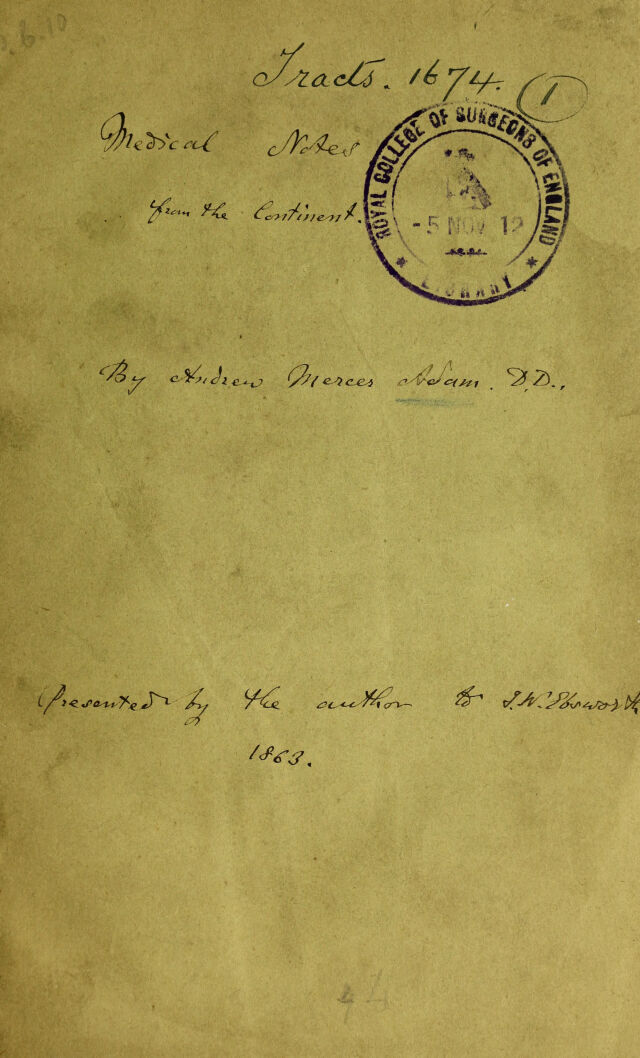 Tracts. 1674. 1
Medical Notes
from the Continent.
ROYAL COLLEGE OF SURGEONS OF ENGLAND
-5 NOV 12
* LIBRARY *
By Andrew Merces Adam. D.D.,
Presented by the author to J.W. Ebsworth
1863.